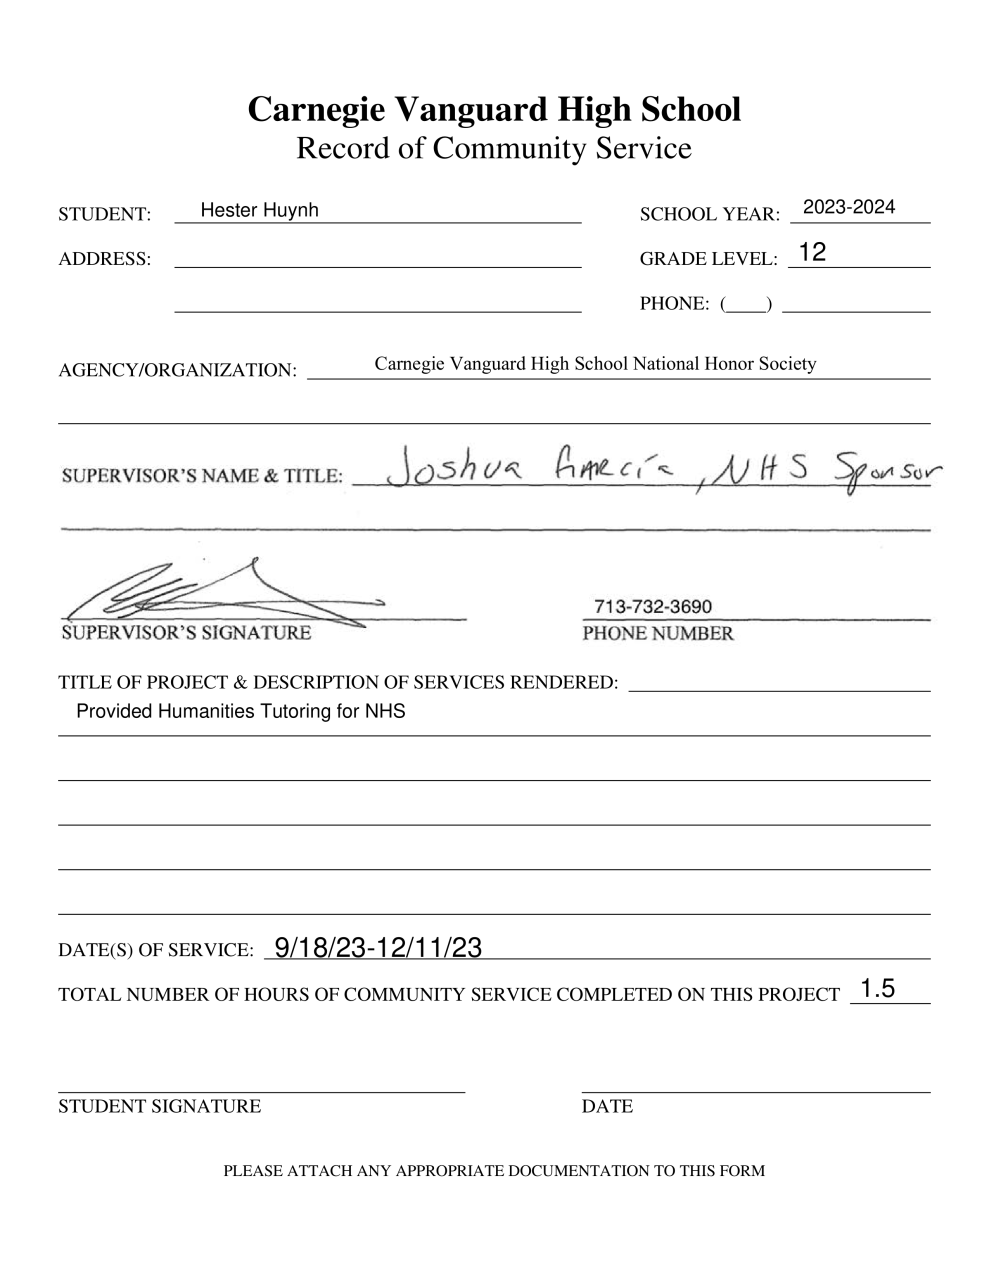 Carnegie Vanguard High School
Record of Community Service
STUDENT: Hester Huynh SCHOOL YEAR: 2023-2024
ADDRESS: GRADE LEVEL: 12
PHONE: (____)
AGENCY/ORGANIZATION: Carnegie Vanguard High School National Honor Society
SUPERVISOR'S NAME & TITLE: Joshua García, NHS Sponsor
713-732-3690
SUPERVISOR'S SIGNATURE PHONE NUMBER
TITLE OF PROJECT & DESCRIPTION OF SERVICES RENDERED:
Provided Humanities Tutoring for NHS
DATE(S) OF SERVICE: 9/18/23-12/11/23
TOTAL NUMBER OF HOURS OF COMMUNITY SERVICE COMPLETED ON THIS PROJECT 1.5
STUDENT SIGNATURE DATE
PLEASE ATTACH ANY APPROPRIATE DOCUMENTATION TO THIS FORM